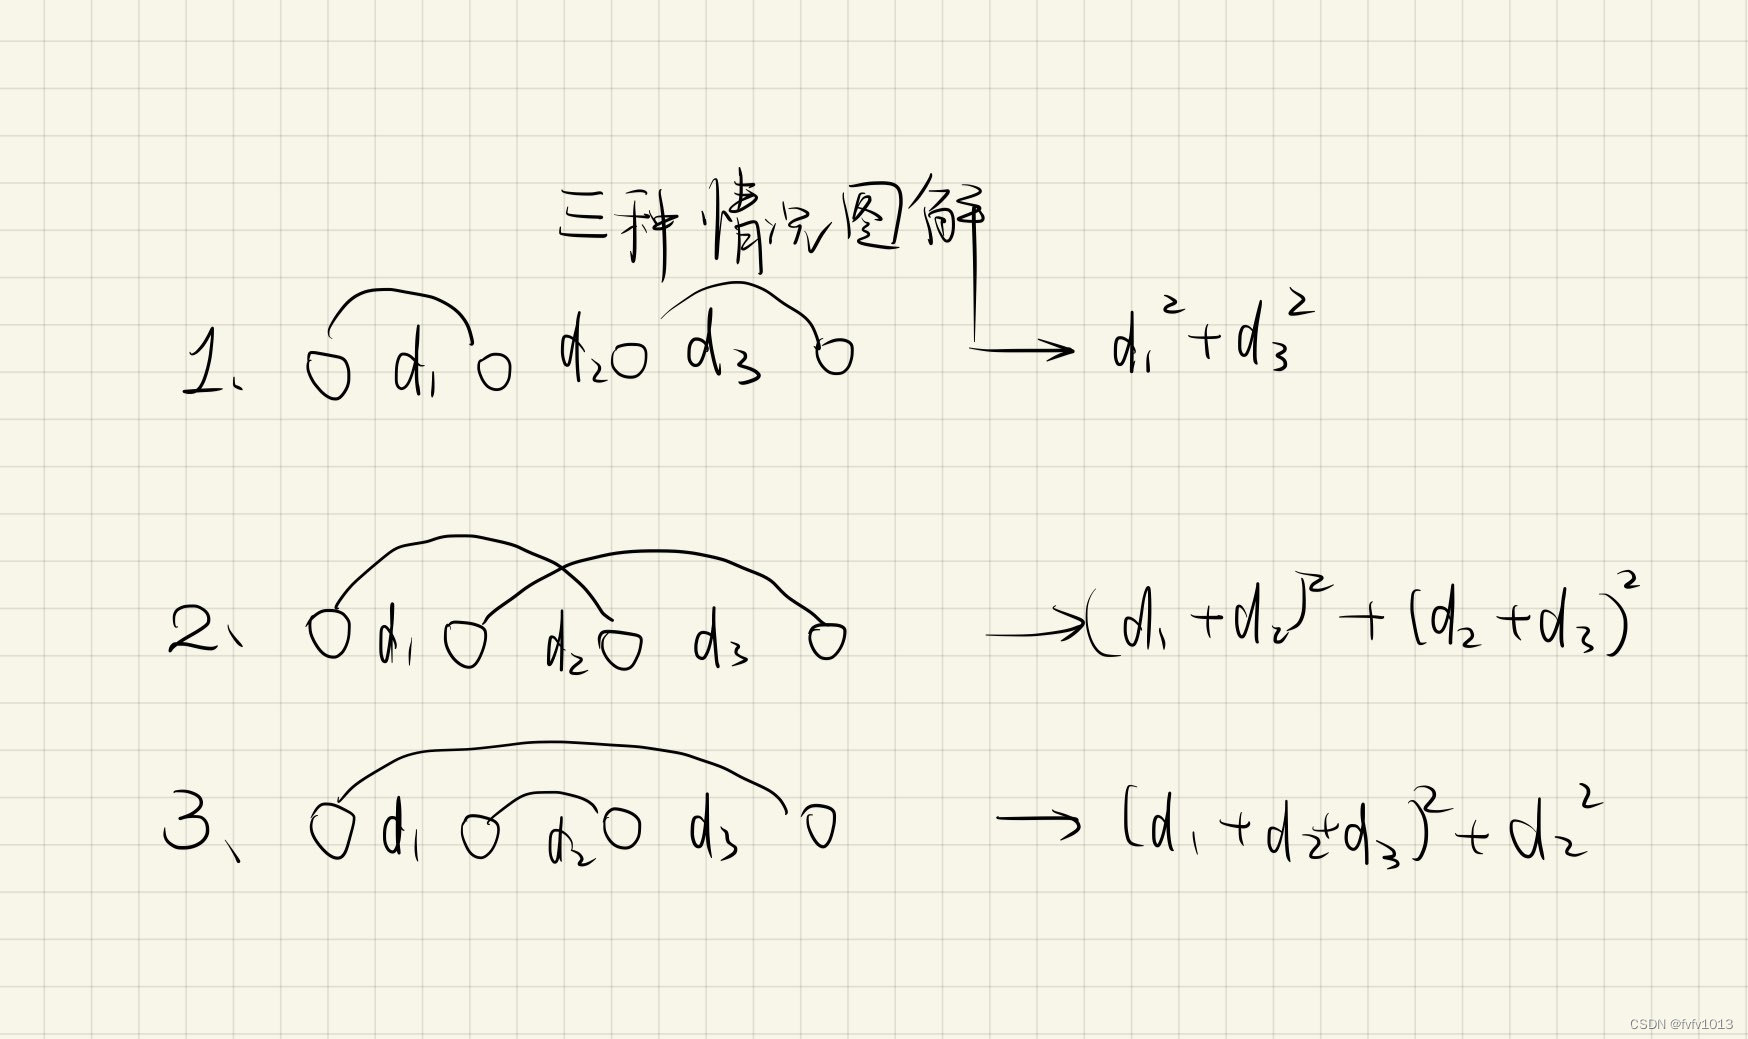 三种情况图解
1、 d₁ d₂ d₃ → d₁² + d₃²
2、 d₁ d₂ d₃ → (d₁ + d₂)² + (d₂ + d₃)²
3、 d₁ d₂ d₃ → (d₁ + d₂ + d₃)² + d₂²
CSDN @fvfv1013